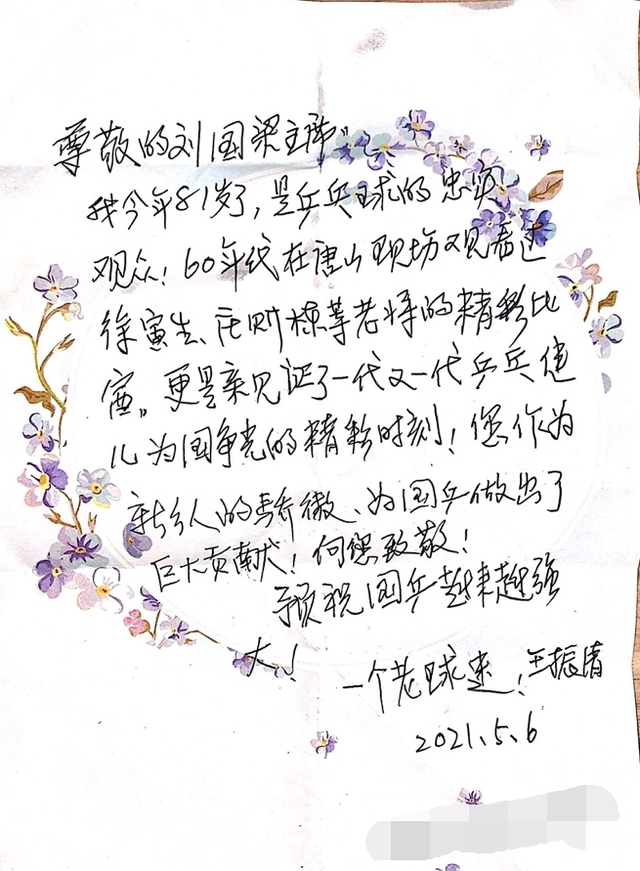 尊敬的刘国梁主席:
我今年81岁了,是乒乓球的忠实
观众!60年代在唐山现场观看过
徐寅生、庄则栋等老将的精彩比
赛。更是亲见证了一代又一代乒乓健
儿为国争光的精彩时刻!您作为
新乡人的骄傲、为国乒做出了
巨大贡献!向您致敬!
预祝国乒越来越强
大!
一个老球迷!王振清
2021.5.6